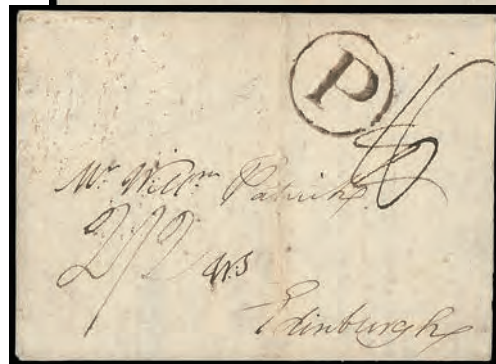 P
Mr. Willm Patrick
2/2 WS
Edinburgh